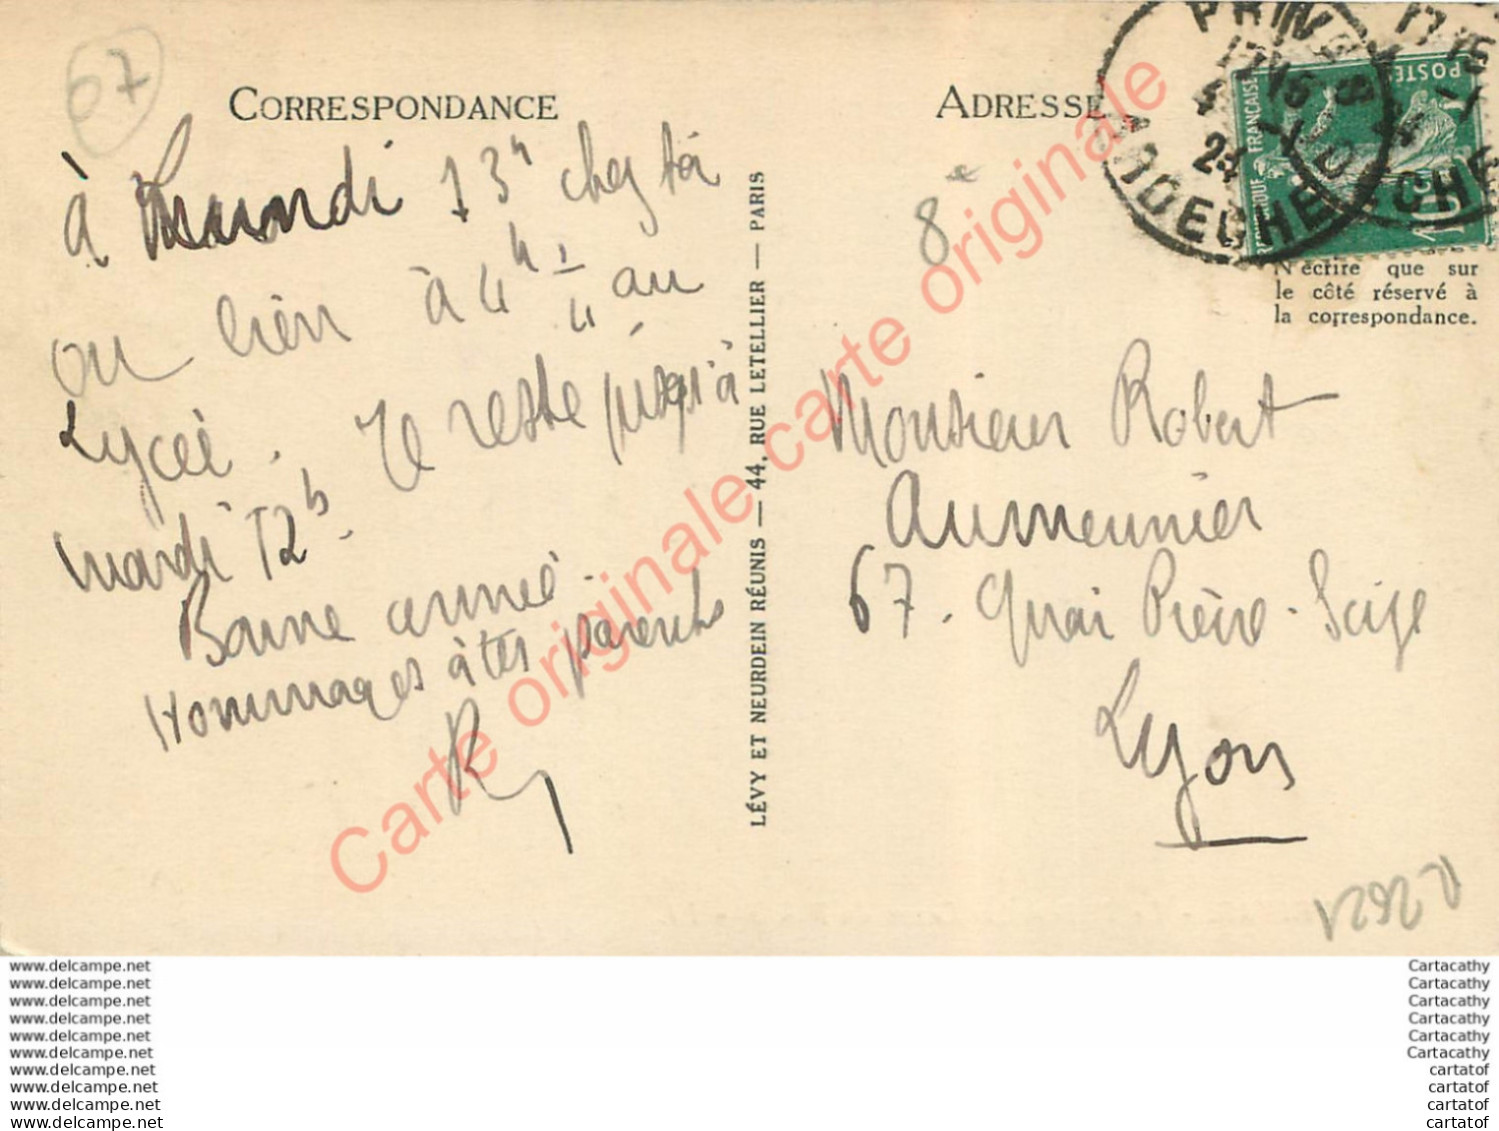 67
CORRESPONDANCE
à Lundi 13h chez toi
ou bien à 4h 1/4 au
Lycée. Je reste jusqu'à
mardi 12h.
Bonne année
Hommages à tes parents
R
LÉVY ET NEURDEIN RÉUNIS — 44, RUE LETELLIER — PARIS
ADRESSE
8e
17 15
4 -1
24
ARDECHE
POSTES
N'écrire que sur
le côté réservé à
la correspondance.
Monsieur Robert
Aumeunier
67. Quai Pierre-Scize
Lyon
Carte originale carte originale
Carte originale
www.delcampe.net
www.delcampe.net
www.delcampe.net
www.delcampe.net
www.delcampe.net
www.delcampe.net
www.delcampe.net
www.delcampe.net
www.delcampe.net
www.delcampe.net
Cartacathy
Cartacathy
Cartacathy
Cartacathy
Cartacathy
Cartacathy
cartatof
cartatof
cartatof
cartatof